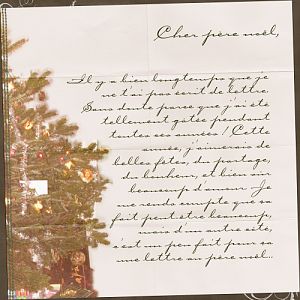 Cher père noël,
Il y a bien longtemps que je
ne t'ai pas écrit de lettre.
Sans doute parce que j'ai été
tellement gâtée pendant
toutes ses années ! Cette
année, j'aimerais de
belles fêtes, du partage,
du bonheur, et bien sûr
beaucoup d'amour. Je
me rends compte que ça
fait peut être beaucoup,
mais d'un autre côté,
c'est un peu fait pour ça
une lettre au père noël...